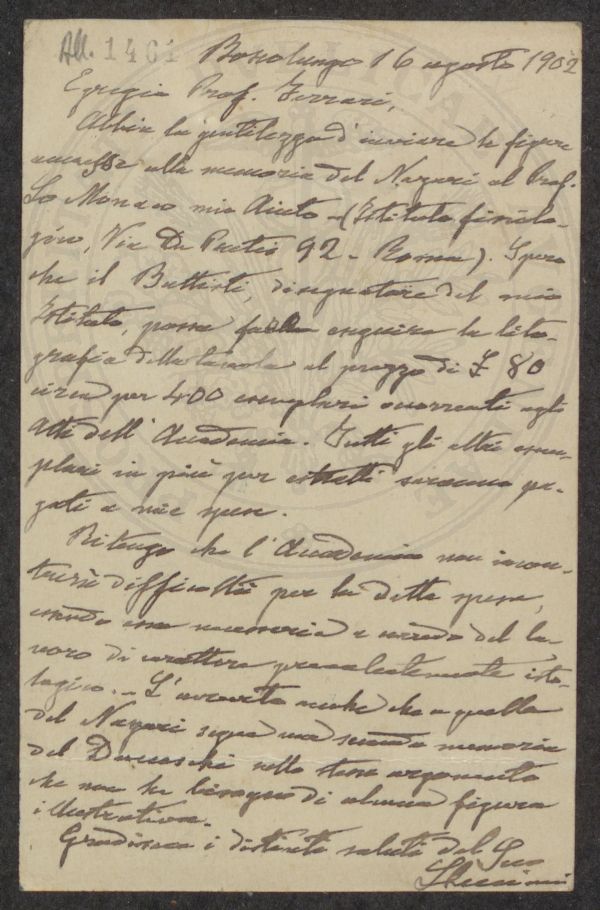 All. 1461
Boscolungo 16 agosto 1902
Egregio Prof. Ferrari,
Abbia la gentilezza d'inviare le figure
annesse alla memoria del Nazari al Prof.
Lo Monaco mio Aiuto - (Istituto fisiolo-
gico, Via De Pretis 92 - Roma). Spero
che il Battisti, disegnatore del mio
Istituto, possa eseguire la lito-
grafia della tavola al prezzo di £ 80
circa per 400 esemplari occorrenti agli
Atti dell'Accademia. Tutti gli altri esem-
plari in più per estratti saranno pa-
gati a mie spese.
Ritengo che l'Accademia non incon-
trerà difficoltà per la detta spesa,
essendo una memoria a corredo del la-
voro di carattere prevalentemente isto-
logico. - L'avverto anche che a quella
del Nazari segue una seconda memoria
del Ducceschi sullo stesso argomento
che non ha bisogno di alcuna figura
illustrativa.
Gradisca i distinti saluti del Suo
LLuciani